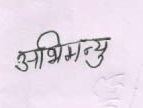 अभिमन्यु